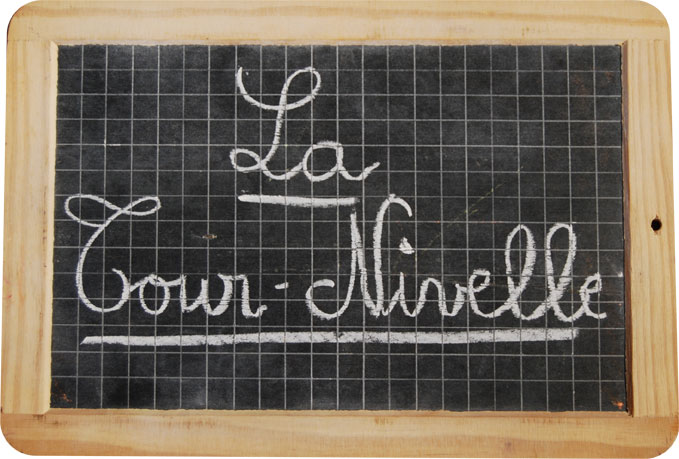 La
Tour-Nivelle